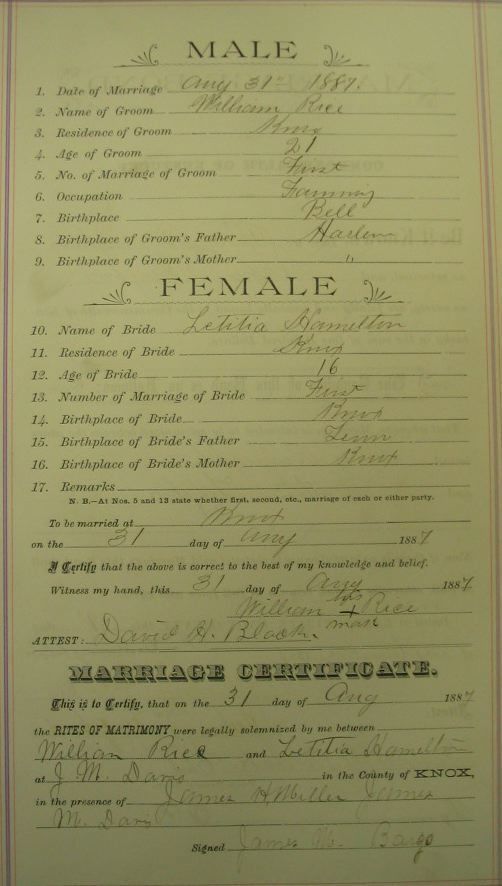 MALE
1. Date of Marriage Aug 31st 1887.
2. Name of Groom William Rice
3. Residence of Groom Knox
4. Age of Groom 21
5. No. of Marriage of Groom First
6. Occupation Farming
7. Birthplace Bell
8. Birthplace of Groom's Father Harlen
9. Birthplace of Groom's Mother "
FEMALE
10. Name of Bride Letitia Hamelton
11. Residence of Bride Knox
12. Age of Bride 16
13. Number of Marriage of Bride First
14. Birthplace of Bride Knox
15. Birthplace of Bride's Father Tenn
16. Birthplace of Bride's Mother Knox
17. Remarks
N. B.—At Nos. 5 and 13 state whether first, second, etc., marriage of each or either party.
To be married at Knox
on the 31 day of Aug 1887
I Certify that the above is correct to the best of my knowledge and belief.
Witness my hand, this 31 day of Aug 1887
William his x mark Rice
ATTEST: David H. Black.
MARRIAGE CERTIFICATE.
This is to Certify, that on the 31 day of Aug 1887
the RITES OF MATRIMONY were legally solemnized by me between
William Rice and Letitia Hamelton
at J. M. Davis in the County of KNOX,
in the presence of James H Miller James
M. Davis
Signed James M. Bargo